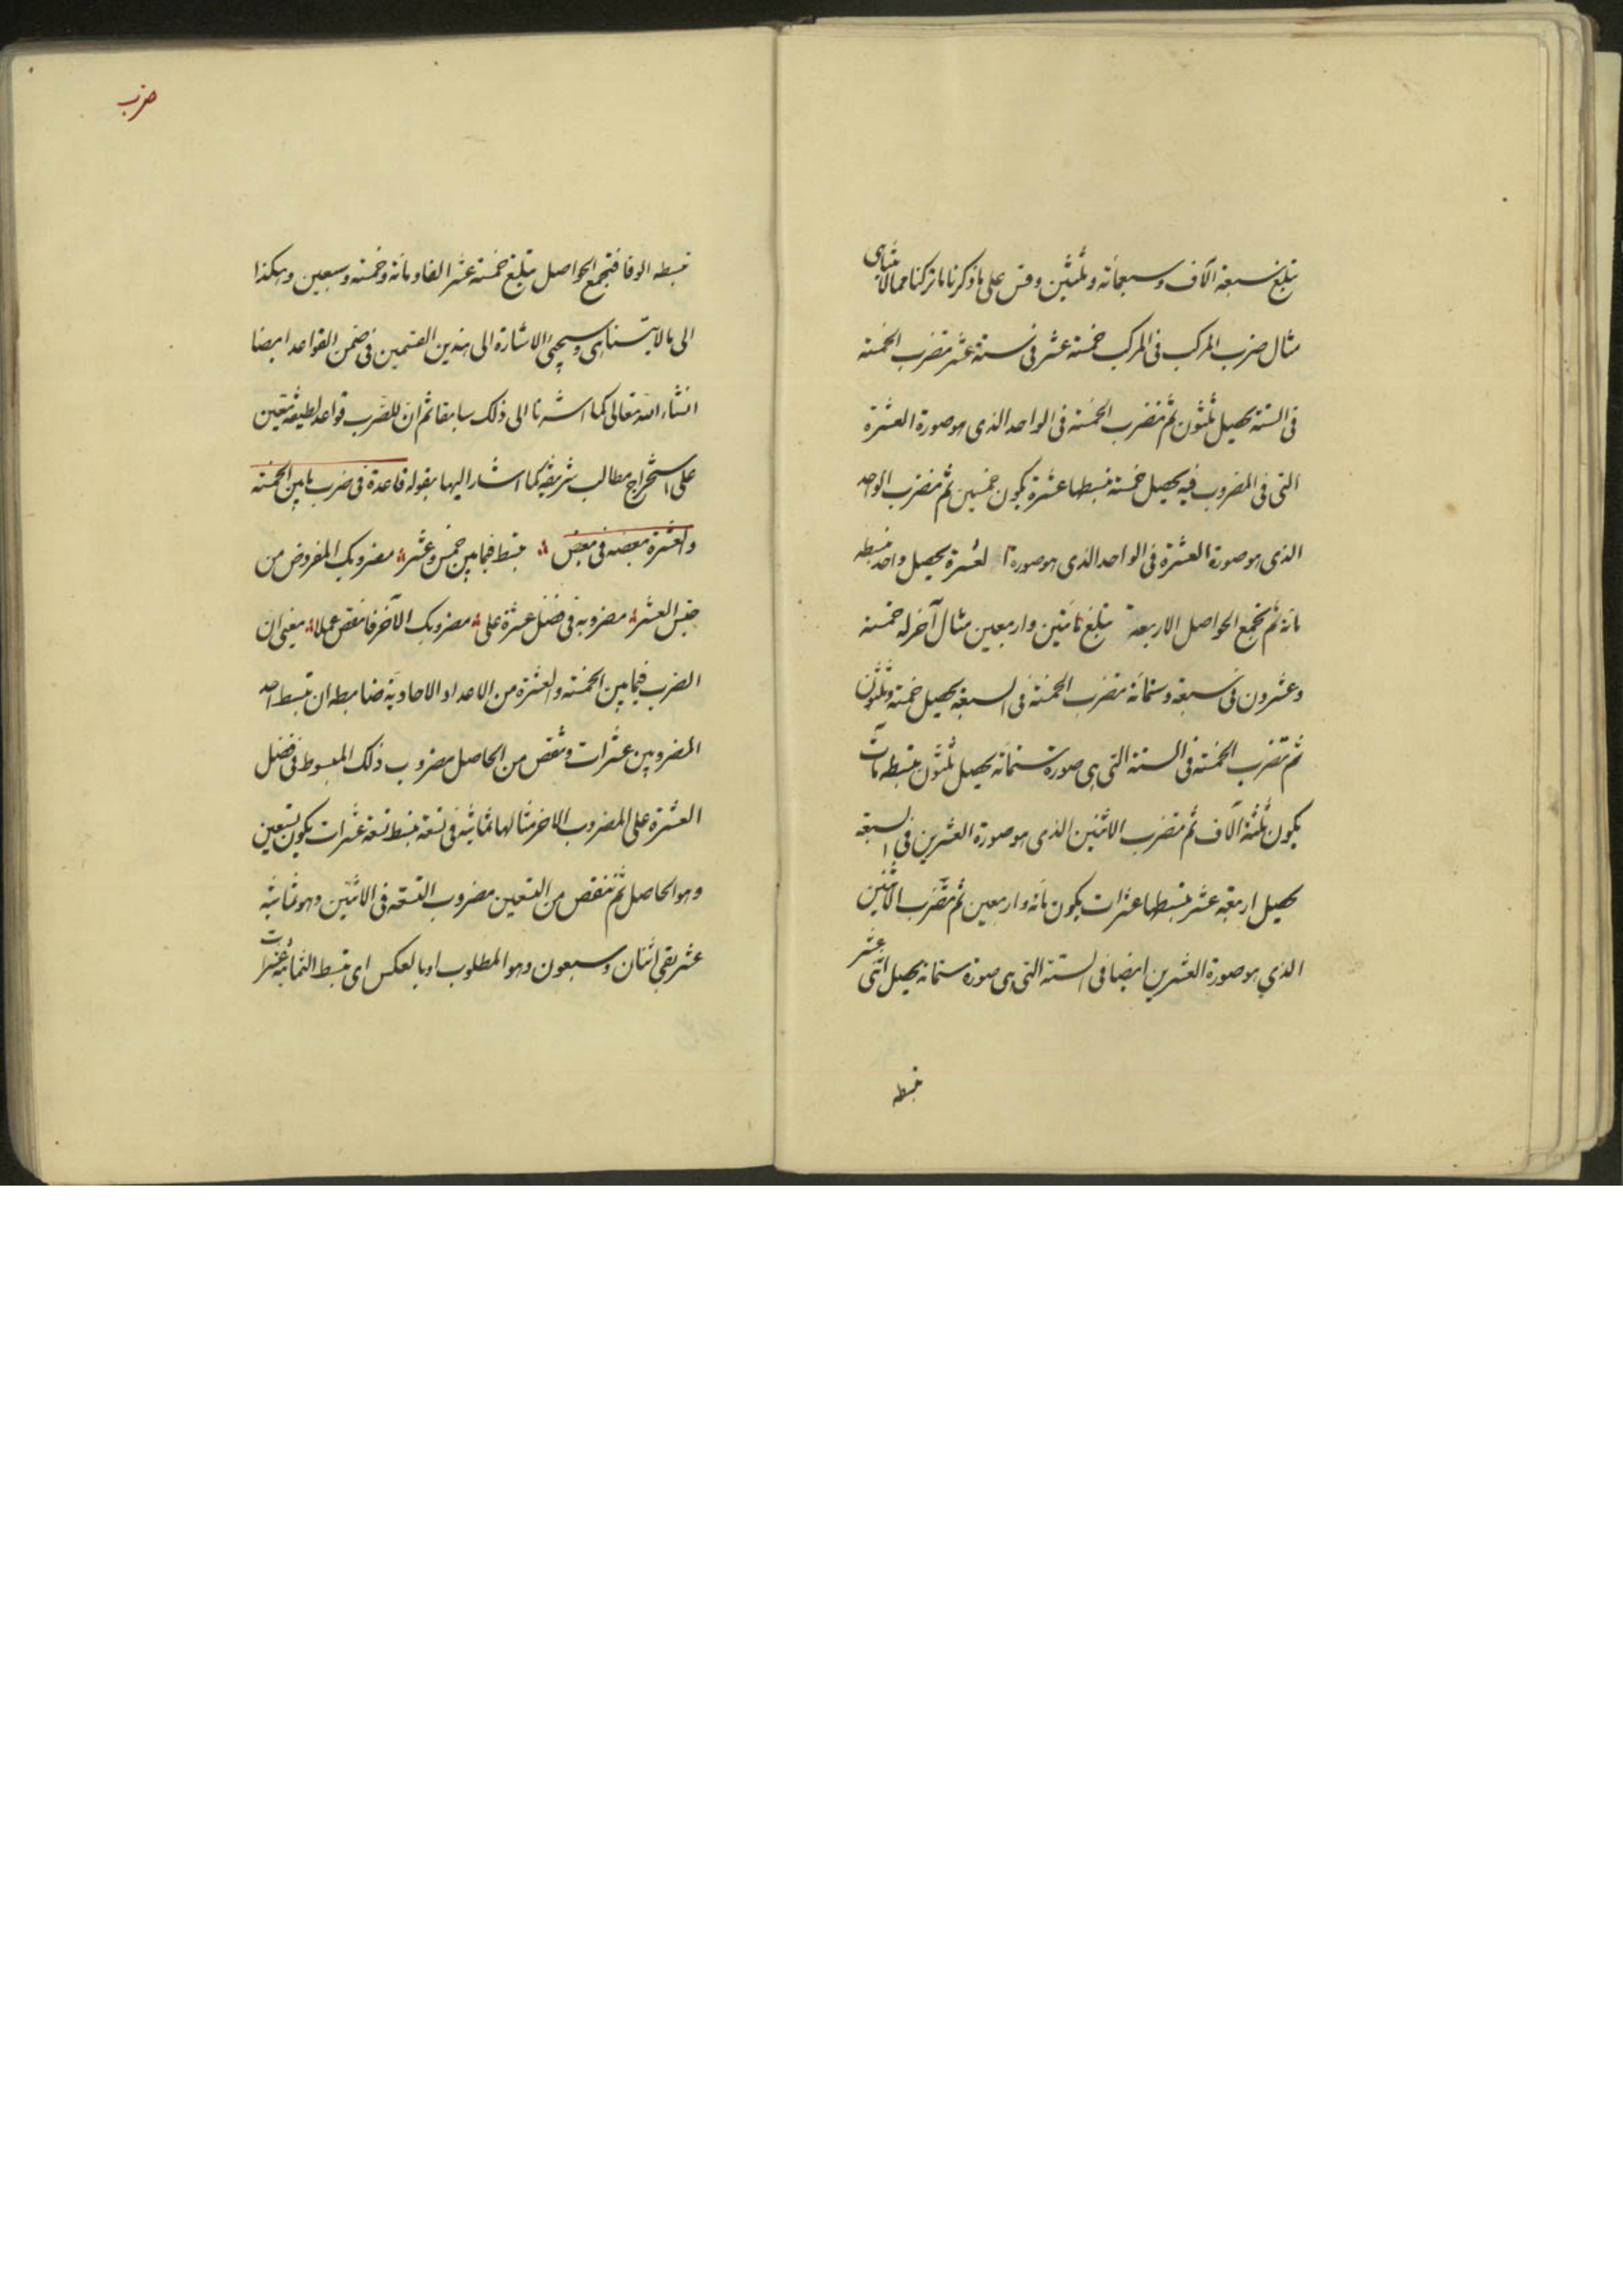 تبلغ سبعة آلاف وسبعمأئة وثلثين وقس على ما ذكرنا ما تركنا مما لا يتناهى
مثال ضرب المركب فى المركب خمسة عشر فى ستة عشر تضرب الخمسة
فى الستة يحصل ثلثون ثم تضرب الخمسة فى الواحد الذى هو صورة العشرة
التى فى المضروب فيه يحصل خمسة نبسطها عشرة يكون خمسين ثم تضرب الواحد
الذى هو صورة العشرة فى الواحد الذى هو صورة العشرة يحصل واحد نبسطه
مائة ثم نجمع الحواصل الاربعة تبلغ مأتين واربعين مثال آخر له خمسة
وعشرون فى سبعة وستمائة تضرب الخمسة فى السبعة يحصل خمسة وثلثون
ثم تضرب الخمسة فى الستة التى هى صورة ستمائة يحصل ثلثون نبسطه مآت
يكون ثلثة آلاف ثم تضرب الاثنين الذى هو صورة العشرين فى السبعة
يحصل اربعة عشر نبسطها عشرات يكون مائة واربعين ثم تضرب الاثنين
الذي هو صورة العشرين ايضا فى الستة التى هى صورة ستمائة يحصل اثنى عشر
نبسطه
ضرب
نبسطه الوفا فنجمع الحواصل تبلغ خمسة عشر الفا ومائة وخمسة وسبعين وهكذا
الى ما لا يتناهى وسيجئ الاشارة الى هذين القسمين فى ضمن القواعد ايضا
انشاء الله تعالى كما اشرنا الى ذلك سابقا ثم ان للضرب قواعد لطيفة تعين
على استخراج مطالب شريفة كما اشار اليها بقوله قاعدة فى ضرب ما بين الخمسة
والعشرة بعضه فى بعض تبسط فيما بين خمس وعشر مضروبك المفروض من
جنس العشر مضروبه فى فضل عشرة على مضروبك الآخر فانقص عملا يعنى ان
الضرب فيما بين الخمسة والعشرة من الاعداد الآحادية ضابطه ان تبسط احد
المضروبين عشرات وتنقص من الحاصل مضروب ذلك المبسوط فى فضل
العشرة على المضروب الاخر مثالها ثمانية فى تسعة نبسط تسعة عشرات يكون تسعين
وهو الحاصل ثم ننقص من التسعين مضروب التسعة فى الاثنين وهو ثمانية
عشر بقى اثنان وسبعون وهو المطلوب او بالعكس اى نبسط الثمانية عشرات